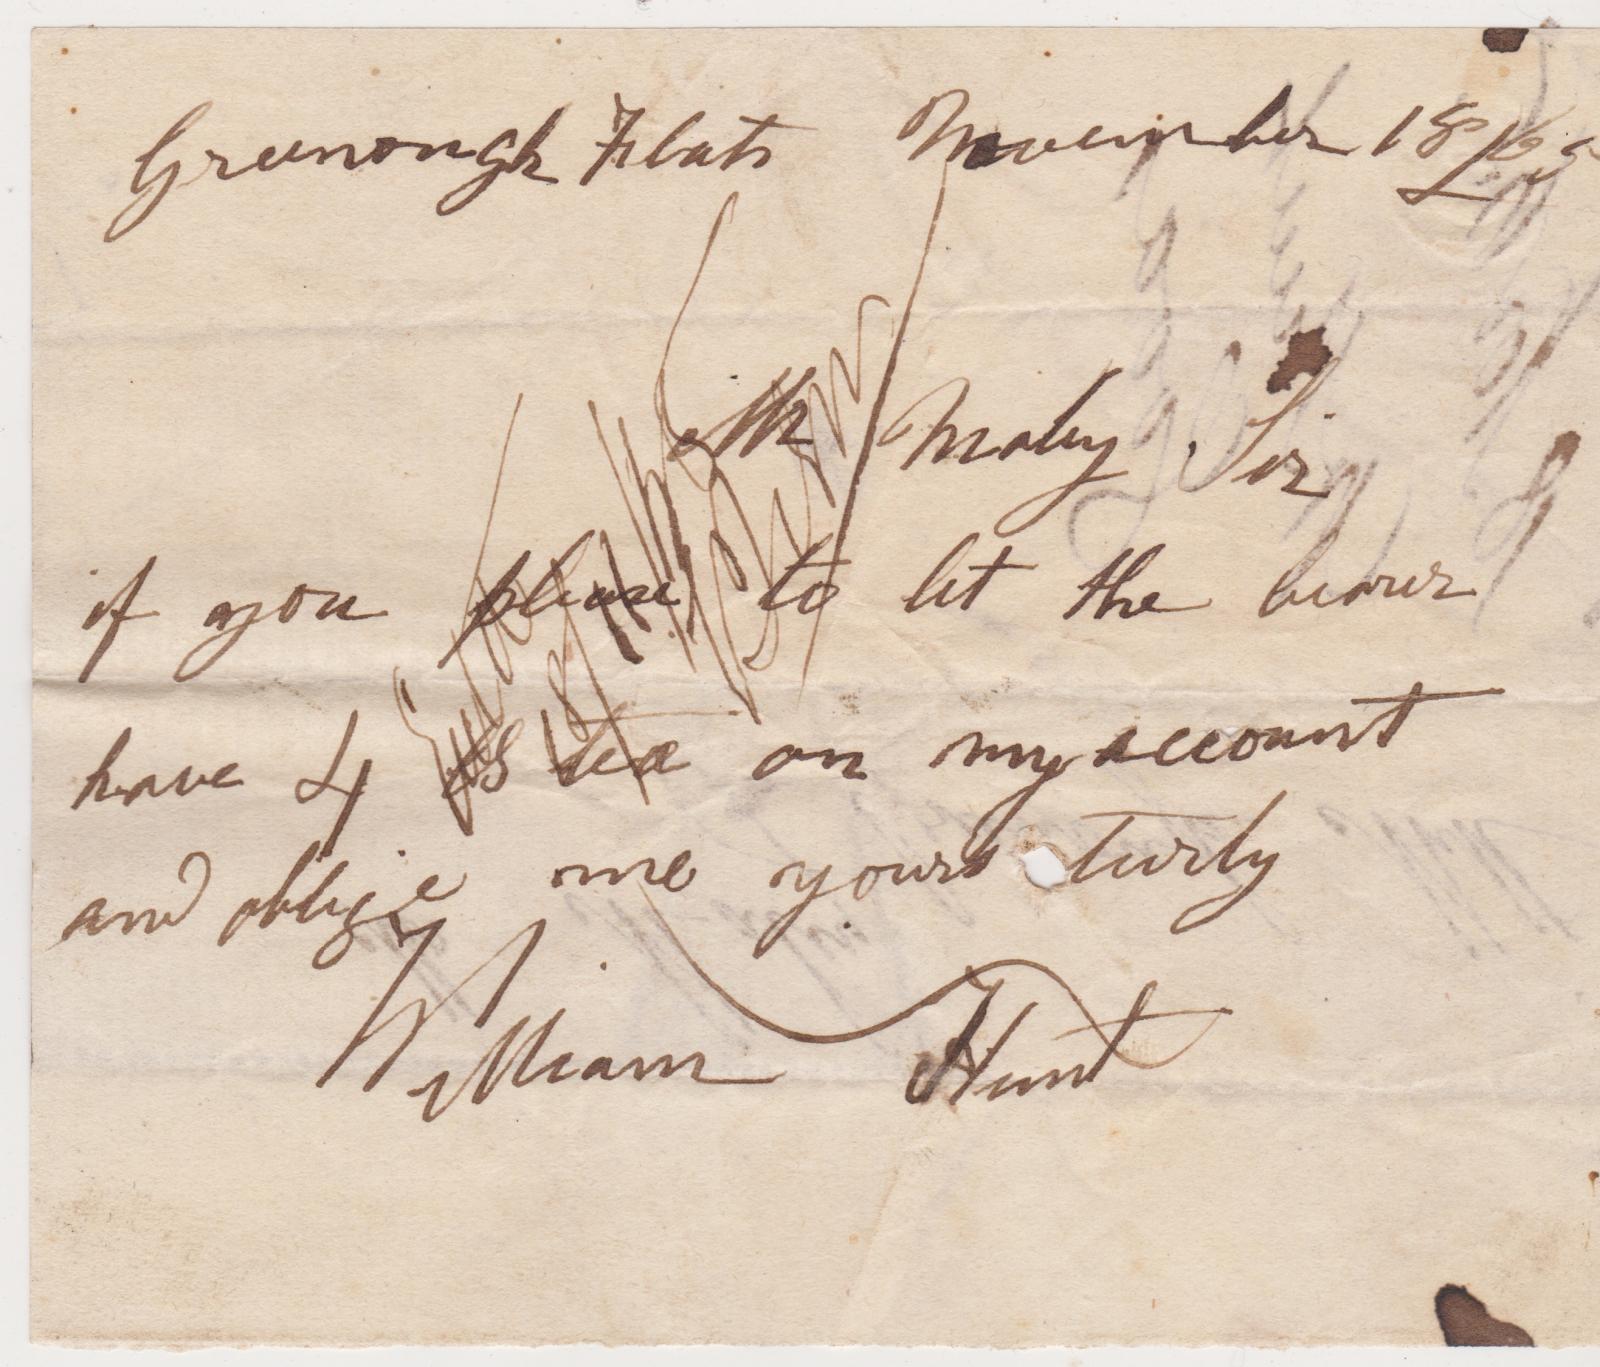 Greenough Flats November 18
Maley Sir
if you please to let the bearer
have 4 lbs tea on my account
and oblige me yours turly
William Hunt